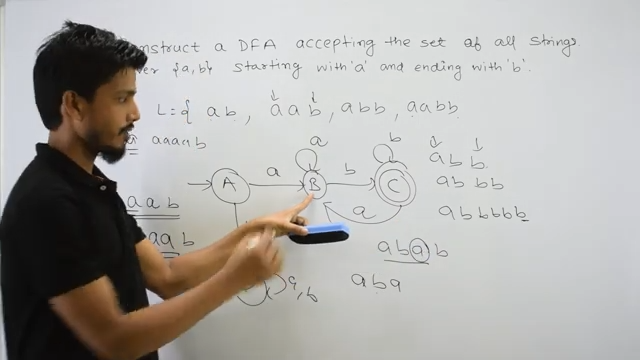 onstruct a DFA accepting the set of all strings
ver {a,b} starting with 'a' and ending with 'b'.
L={ ab, aab, abb, aabb
a aaaab
a
b
abb
A a B b C
abbb
aab
a
abbbbb
aab
abab
aba
a,b